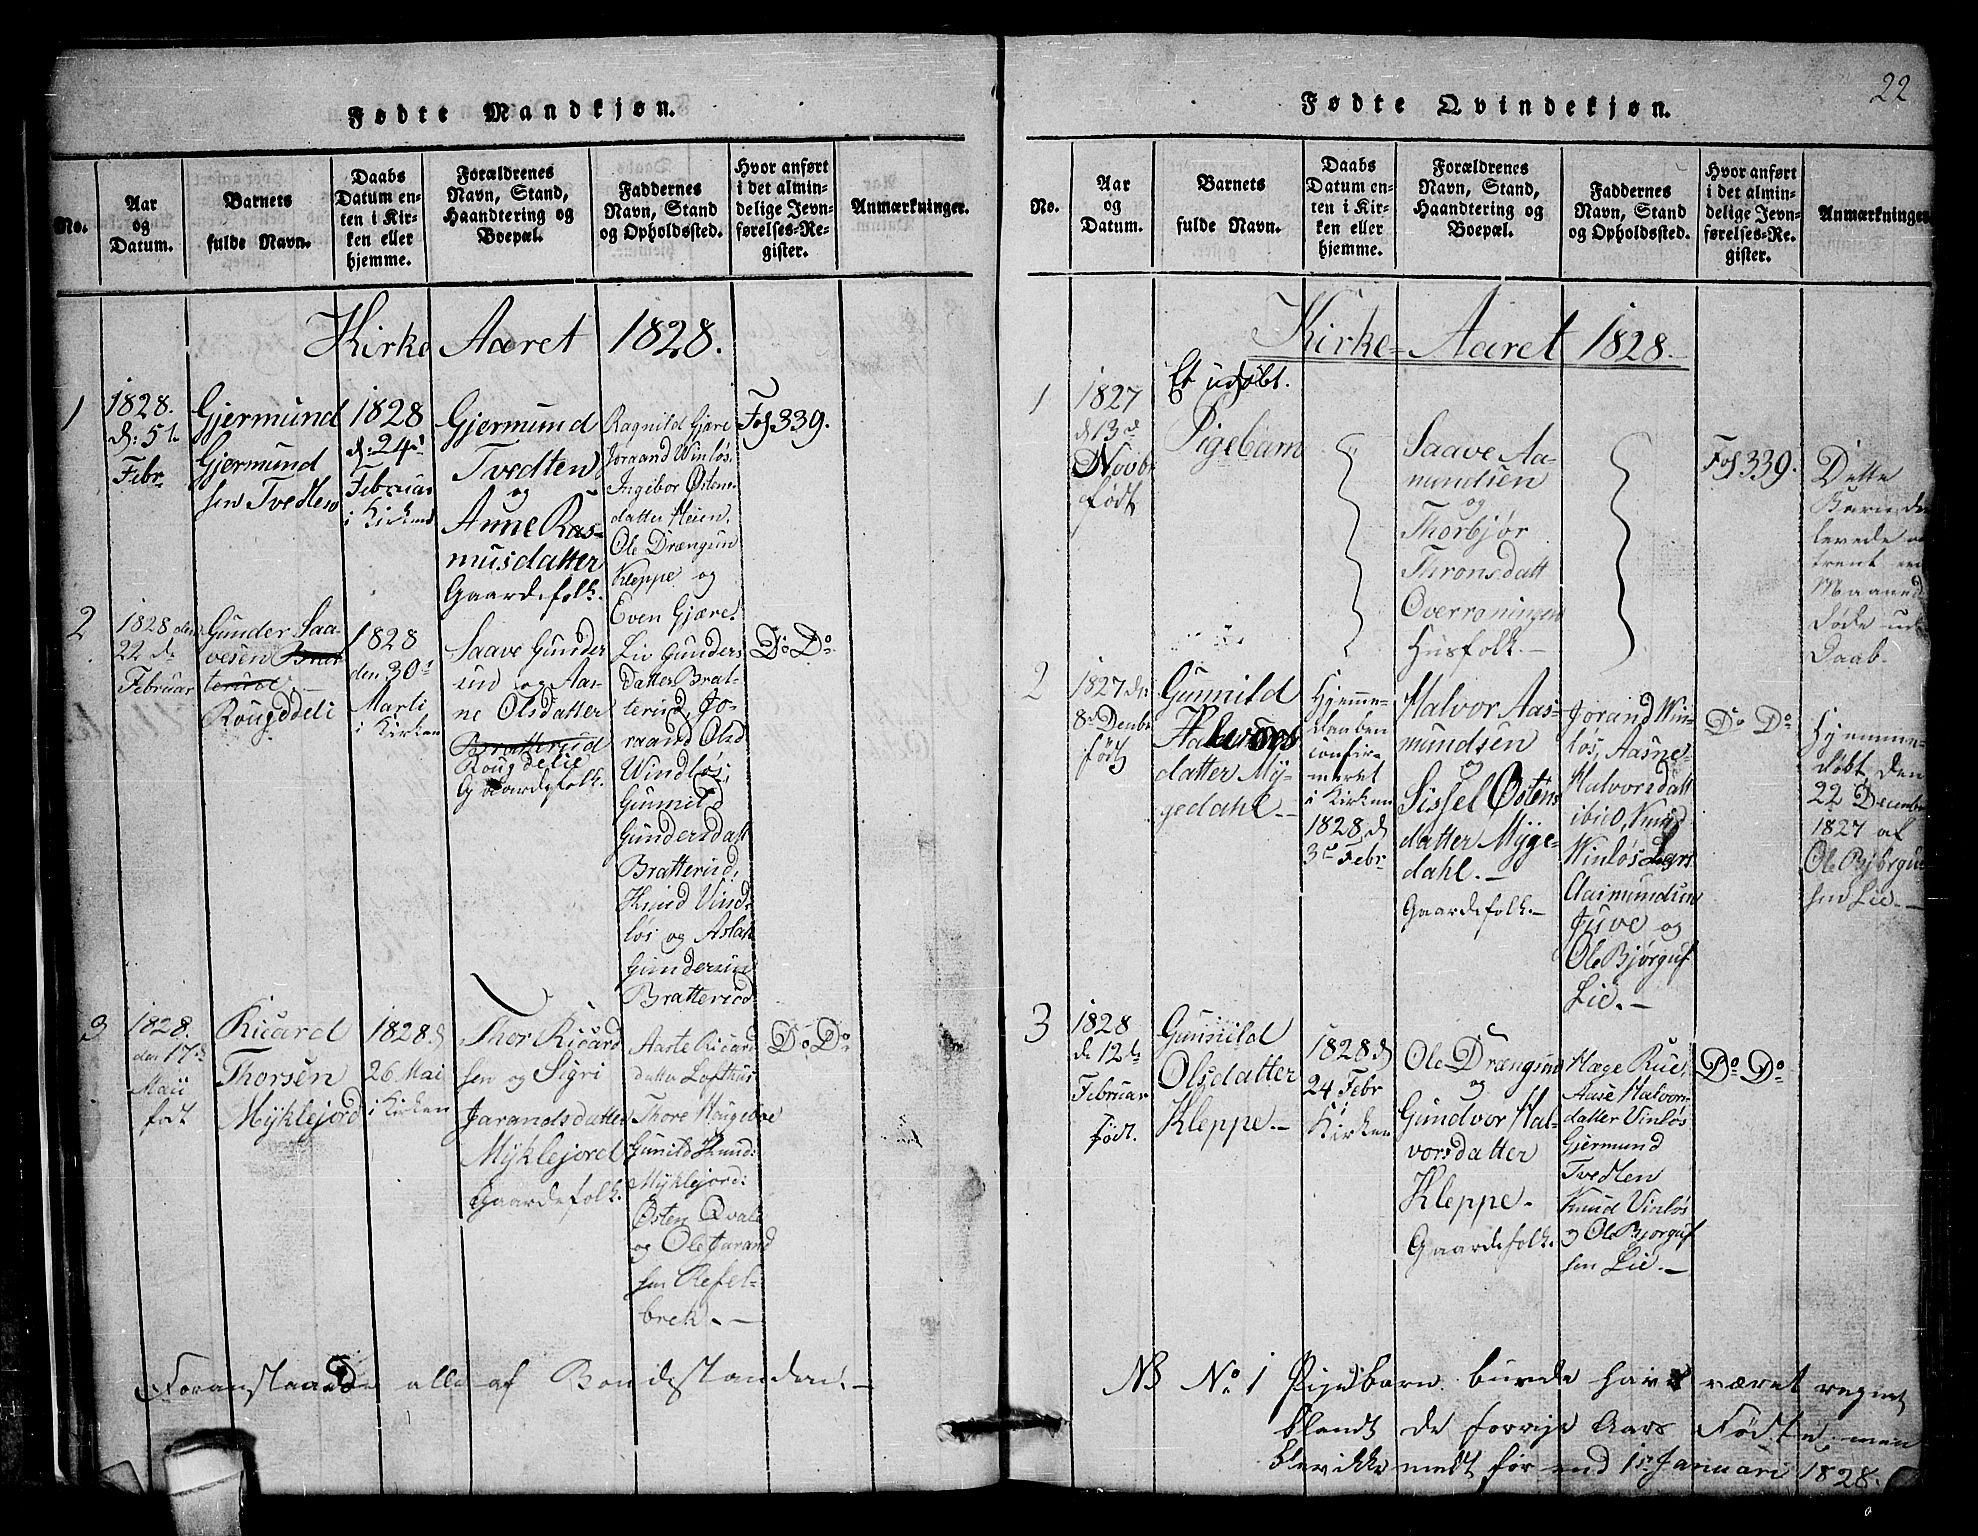 Fødte Mandkjøn.
No.
Aar
og
Datum.
Barnets
fulde Navn.
Daabs
Datum en-
ten i Kir-
ken eller
hjemme.
Forældrenes
Navn, Stand,
Haandtering og
Boepæl.
Faddernes
Navn, Stand
og Opholdssted.
Hvor anført
i det almin-
delige Jevn-
førelses-Re-
gister.
Anmærkninger.
Kirke Aaret 1828.
1
1828.
d: 5t
Febr
Gjermund
Gjermund
sen Tvedten
1828
d: 24d
Februar
i Kirken
Gjermund
Tvedten
og
Anne Ras-
musdatter
Gaardefolk.
Ragnild Gjære
Joraand Winløs,
Ingibor Østens
datter Meien,
Ole Drængsun
Kleppe og
Even Gjære.
Fol 339.
2
1828 den
22 de
Februar
Gunder Saa-
vesen Brat
terud
Rougdeli
1828
den 30d
Marti
i Kirken
Saave Gunder
und og Aas-
ne Olsdatter
Bratterud
Rougdelie
Gaardefolk.
Liv Gunders
datter Brat-
terud, Jo-
raand Olsd
Windløs,
Gunnild
Gundersdatt
Bratterud,
Knud Vind-
løs og Aslak
Gundersen
Bratterud
Do Do
3
1828.
den 17de
Maii
født
Ricard
Thorsen
Myklejord
1828 d
26 Mai
i Kirken
Thor Ricard
sen og Sigri
Jarandsdatter
Myklejord
Gaardefolk.
Aaste Ricard
datter Lofthus
Thore Hougeboe
Gunild Knud:
Myklejord:
Østen Qvale
og Ole Jarand
sen Olefel-
brek. —
Do Do
Foranstaaende alle af Bondestanden. —
22
Fødte Qvindekjøn.
No.
Aar
og
Datum.
Barnets
fulde Navn.
Daabs
Datum en-
ten i Kir-
ken eller
hjemme.
Forældrenes
Navn, Stand,
Haandtering og
Boepæl.
Faddernes
Navn, Stand
og Opholdssted.
Hvor anført
i det almin-
delige Jevn-
førelses-Re-
gister.
Anmærkninger
Kirke-Aaret 1828.
1
1827
d 13d
Novbr
født
Et udøbt.
Pigebarn
Saave Aa-
mundsen
og
Thorbjør
Thronsdatt
Overroningen
Husfolk. —
Fol 339.
Dette
Barn, der
levede om
trent en
Maaned
døde uden
Daab.
2
1827 d:
8de Denbr
født
Gunnild
Halvors
datter My-
gedahl. —
Hjemme-
daaben
confir-
meret
i Kirken
1828 d
3de Febr
Halvor Aas-
mundsen
og
Sissel Østens
datter Myge-
dahl. —
Gaardefolk. —
Jorand Win-
løs, Aasne
Halvorsdatt
ibid, Knud
Winløs Lars
Aasmundsen
Juve og
Ole Bjørguf
Lie. —
Do Do
Hjemme-
døbt den
22 Decembr
1827 af
Ole Bjørguf
sen Lie. —
3
1828
d 12de
Februar
født.
Gunnild
Olsdatter
Kleppe. —
1828 d
24 Febr
i
Kirken
Ole Drængsun
og
Gundvor Hal-
vorsdatter
Kleppe. -
Gaardefolk.
Hæge Rue,
Aase Halvors-
datter Vinløs
Gjermund
Tvedten
Knud Vinløs
og Ole Bjørguf
sen Lie. —
Do Do
NB No 1 Pigebarn burde have været regnet
blandt de forrige Aars Fødte men
blev ikke meldt før end 1ste Januari 1828.